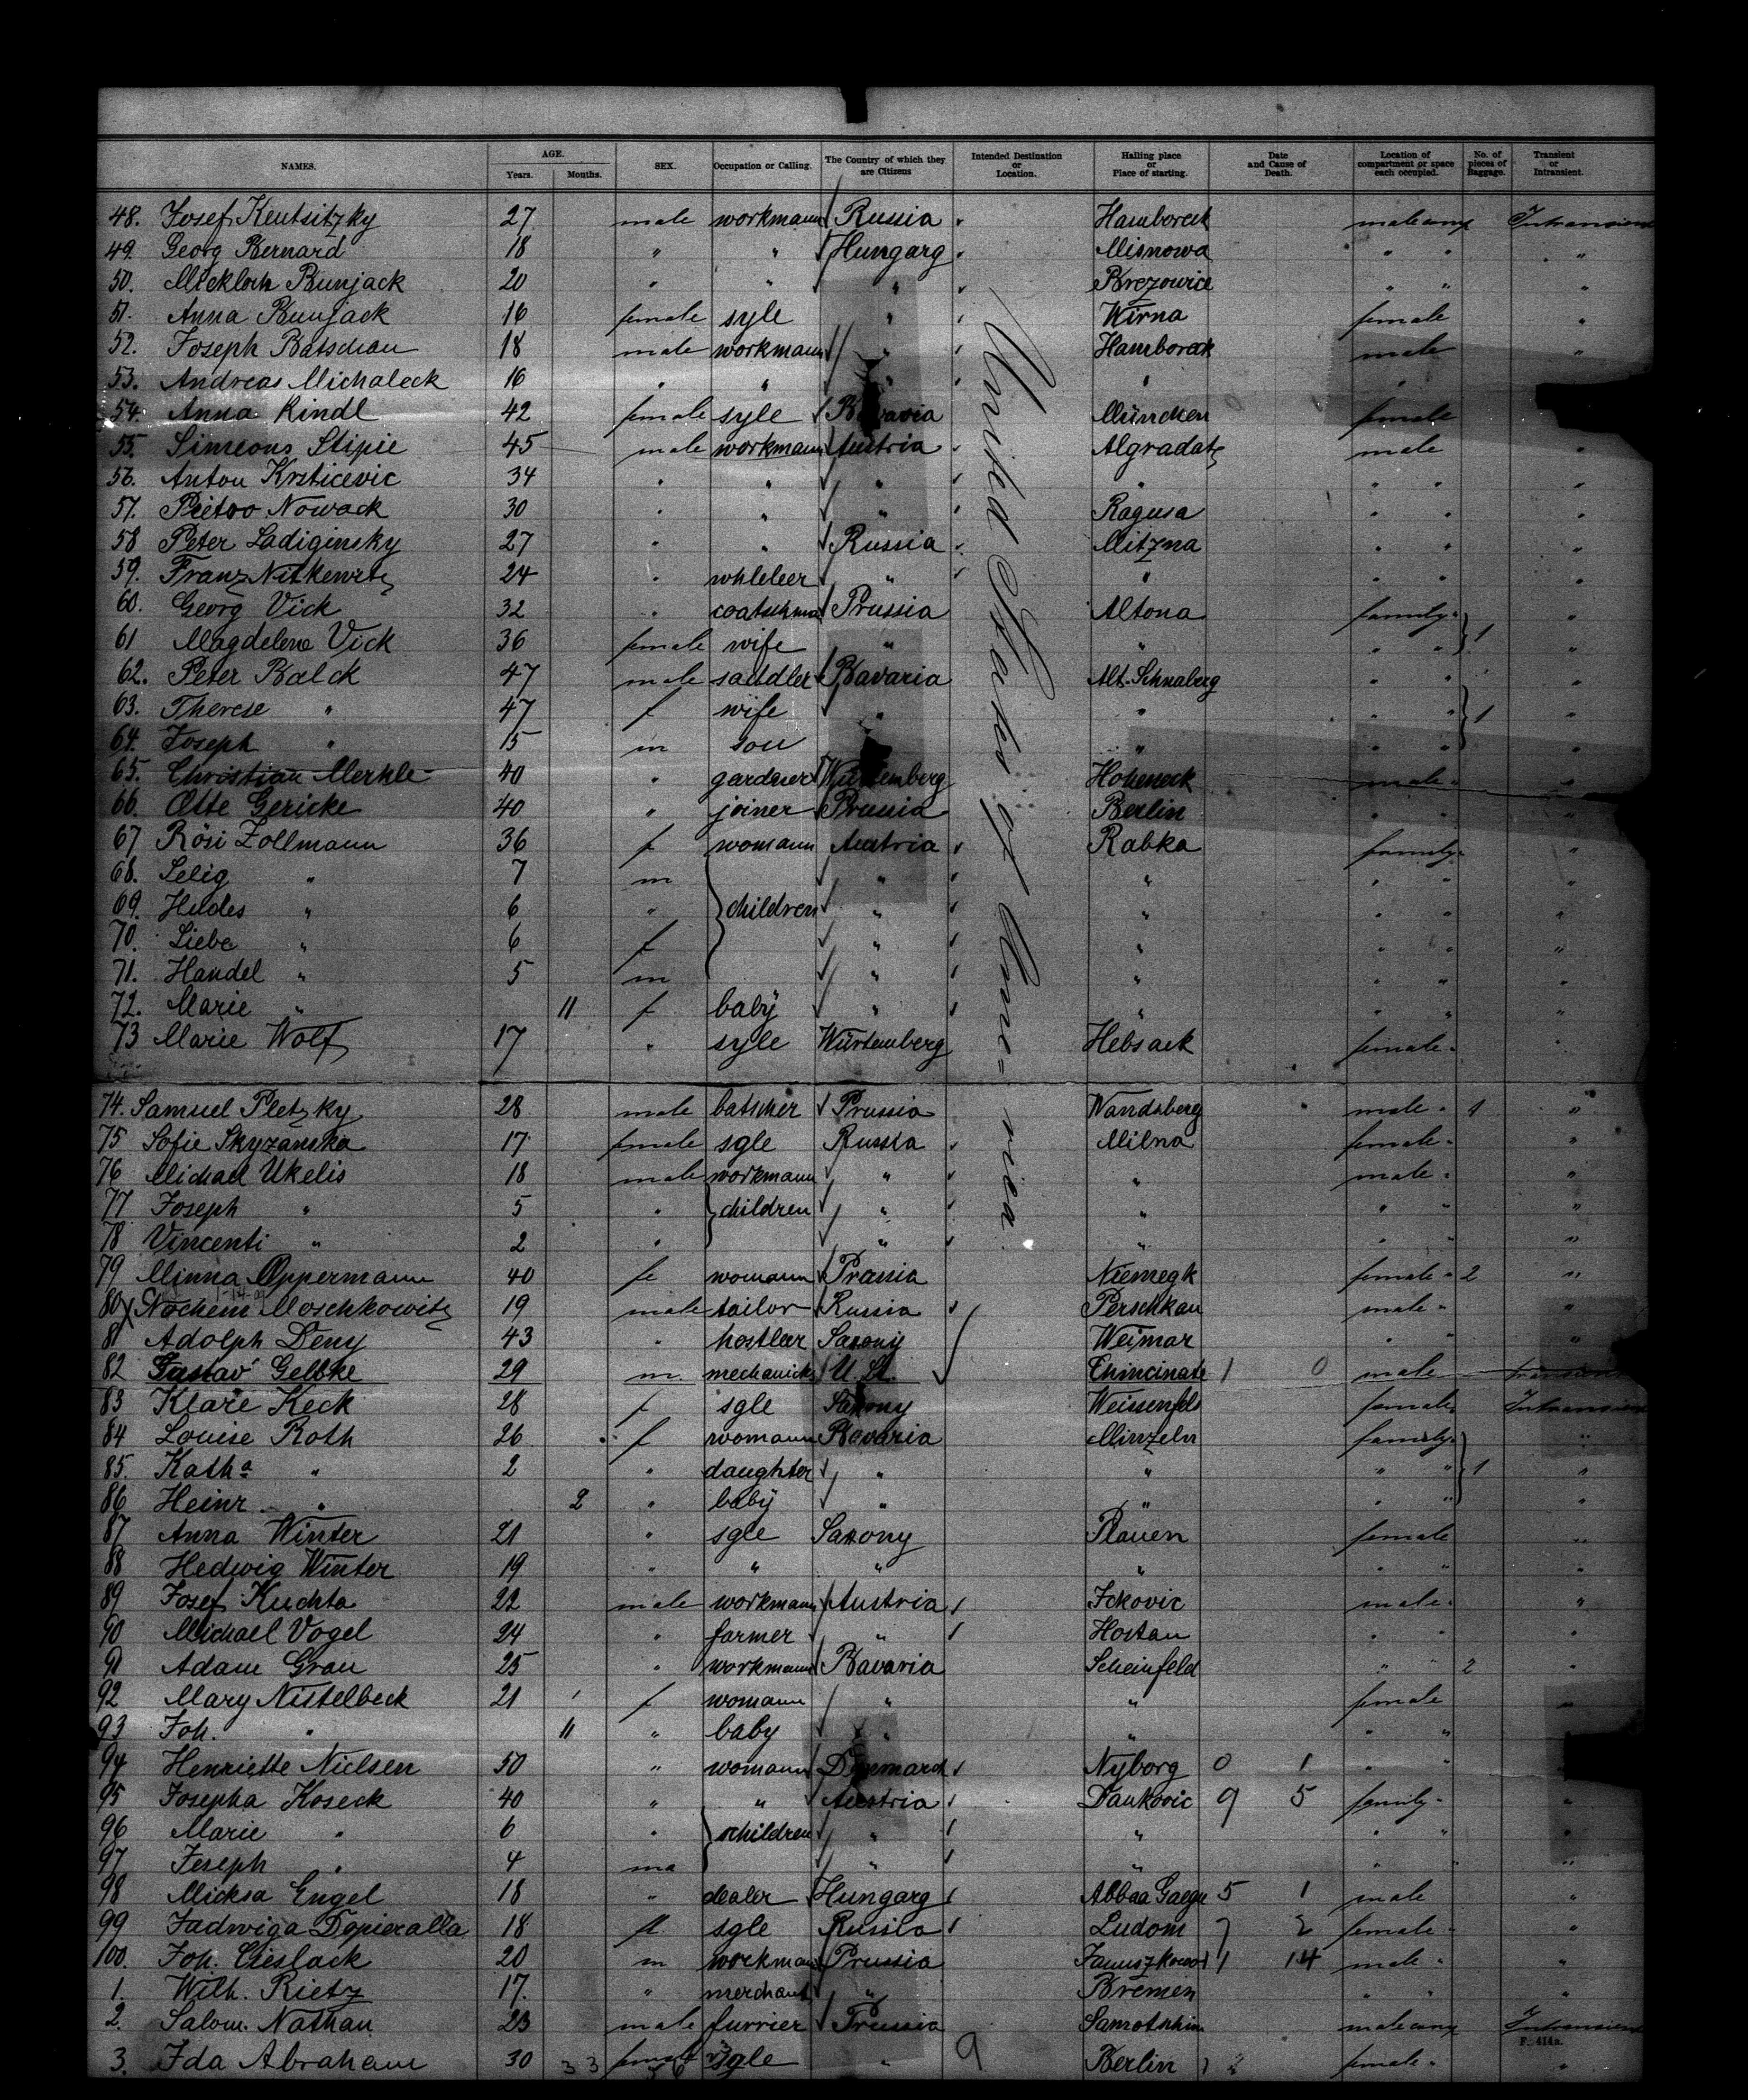 NAMES. AGE. Years. Months. SEX. Occupation or Calling. The Country of which they are Citizens Intended Destination or Location. Hailing place or Place of starting. Date and Cause of Death. Location of compartment or space each occupied. No. of pieces of Baggage. Transient or Intransient.
United States of Ame= rica.
48. Josef Keutsitzky 27 male workmann Russia Hamboreck male comp Intransient
49. Georg Bernard 18 " " Hungarg Misnowa " " "
50. Mickloch Bunjack 20 " " " Brezowice " " "
51. Anna Bunjack 16 female sgle " Wirna female "
52. Joseph Batschau 18 male workmann " Hamboreck male "
53. Andreas Michaleck 16 " " " " "
54. Anna Rindl 42 female sgle Bavaria München female "
55. Simeons Stipie 45 male workmann Austria Algradatz male "
56. Anton Krsticevic 34 " " " " " " "
57. Pietro Nowack 30 " " " Ragusa " " "
58 Peter Ladiginsky 27 " " Russia Mitzna " " "
59. Franz Nitkewitz 24 " whleleer " " " " "
60. Georg Vick 32 " coatschma Prussia Altona family "
61 Magdelena Vick 36 female wife " " " " 1 "
62. Peter Balck 47 male saddler Bavaria Alt-Schnaberg " " "
63. Therese " 47 f wife " " " " 1 "
64. Joseph " 15 m son " " " " "
65. Christian Merkle 40 " gardner Würtemberg Hoheneck male "
66. Otte Gericke 40 " joiner Prussia Berlin " " "
67 Rösi Zollmann 36 f womann Austria Rabka family "
68. Selig " 7 m " " " " "
69. Hudes " 6 " children " " " " "
70. Liebe " 6 f " " " " "
71. Handel " 5 m " " " " "
72. Marie " 11 f baby " " " " "
73 Marie Wolf 17 " sgle Würtemberg Hebsack female "
74. Samuel Pletzky 28 male batscher Prussia Wandsberg male 1 "
75 Sofie Skyzanska 17 female sgle Russia Milna female "
76 Michael Ukelis 18 male workmann " " male "
77 Joseph " 5 " children " " " " "
78 Vincenti " 2 " " " " " "
79 Minna Oppermann 40 fe womann Prussia Niemegk female 2 "
80 Nochem Moschkowitz 19 male tailor Russia Perschkau male "
81 Adolph Deny 43 " hostleer Saxony Weimar " " "
82 Gustav Gelbke 29 m. mechanick U. St. Chincinate 1 0 male transient
83 Klare Keck 28 f sgle Saxony Weissenfels female Intransient
84 Louise Roth 26 f womann Bavaria Minzeln family "
85. Kath.a " 2 " daughter " " " " 1 "
86 Heinr. " 2 " baby " " " " "
87 Anna Winter 21 " sgle Saxony Plauen female "
88 Hedwig Winter 19 " " " " " " "
89 Josef Kuchta 22 male workmann Austria Ickovic male "
90 Michael Vogel 24 " farmer " Hostau " " "
91 Adam Grau 25 " workmann Bavaria Scheinfeld " " 2 "
92 Mary Nistelbeck 21 f womann " " female "
93 Joh. " 11 " baby " " " "
94 Henriette Nielsen 50 " womann Denmark Nyborg 0 1 " "
95 Josepha Koseck 40 " " Austria Daukovic 9 5 family "
96 Marie " 6 " children " " " " "
97 Joseph " 4 ma " " " " "
98 Micksa Engel 18 " dealer Hungarg Abbaa 5 1 male "
99 Jadwiga Dopieralla 18 fl sgle Russia Ludom 7 2 female "
100. Joh. Cieslack 20 m workman Prussia 1 14 male "
1. Wilh. Rietz 17. " merchant " Bremen " " "
2. Salom. Nathan 23 male furrier Prussia Samotshin male comp Intransient
F. 414a.
3. Ida Abraham 30 3 3 female sgle " 9 Berlin female "